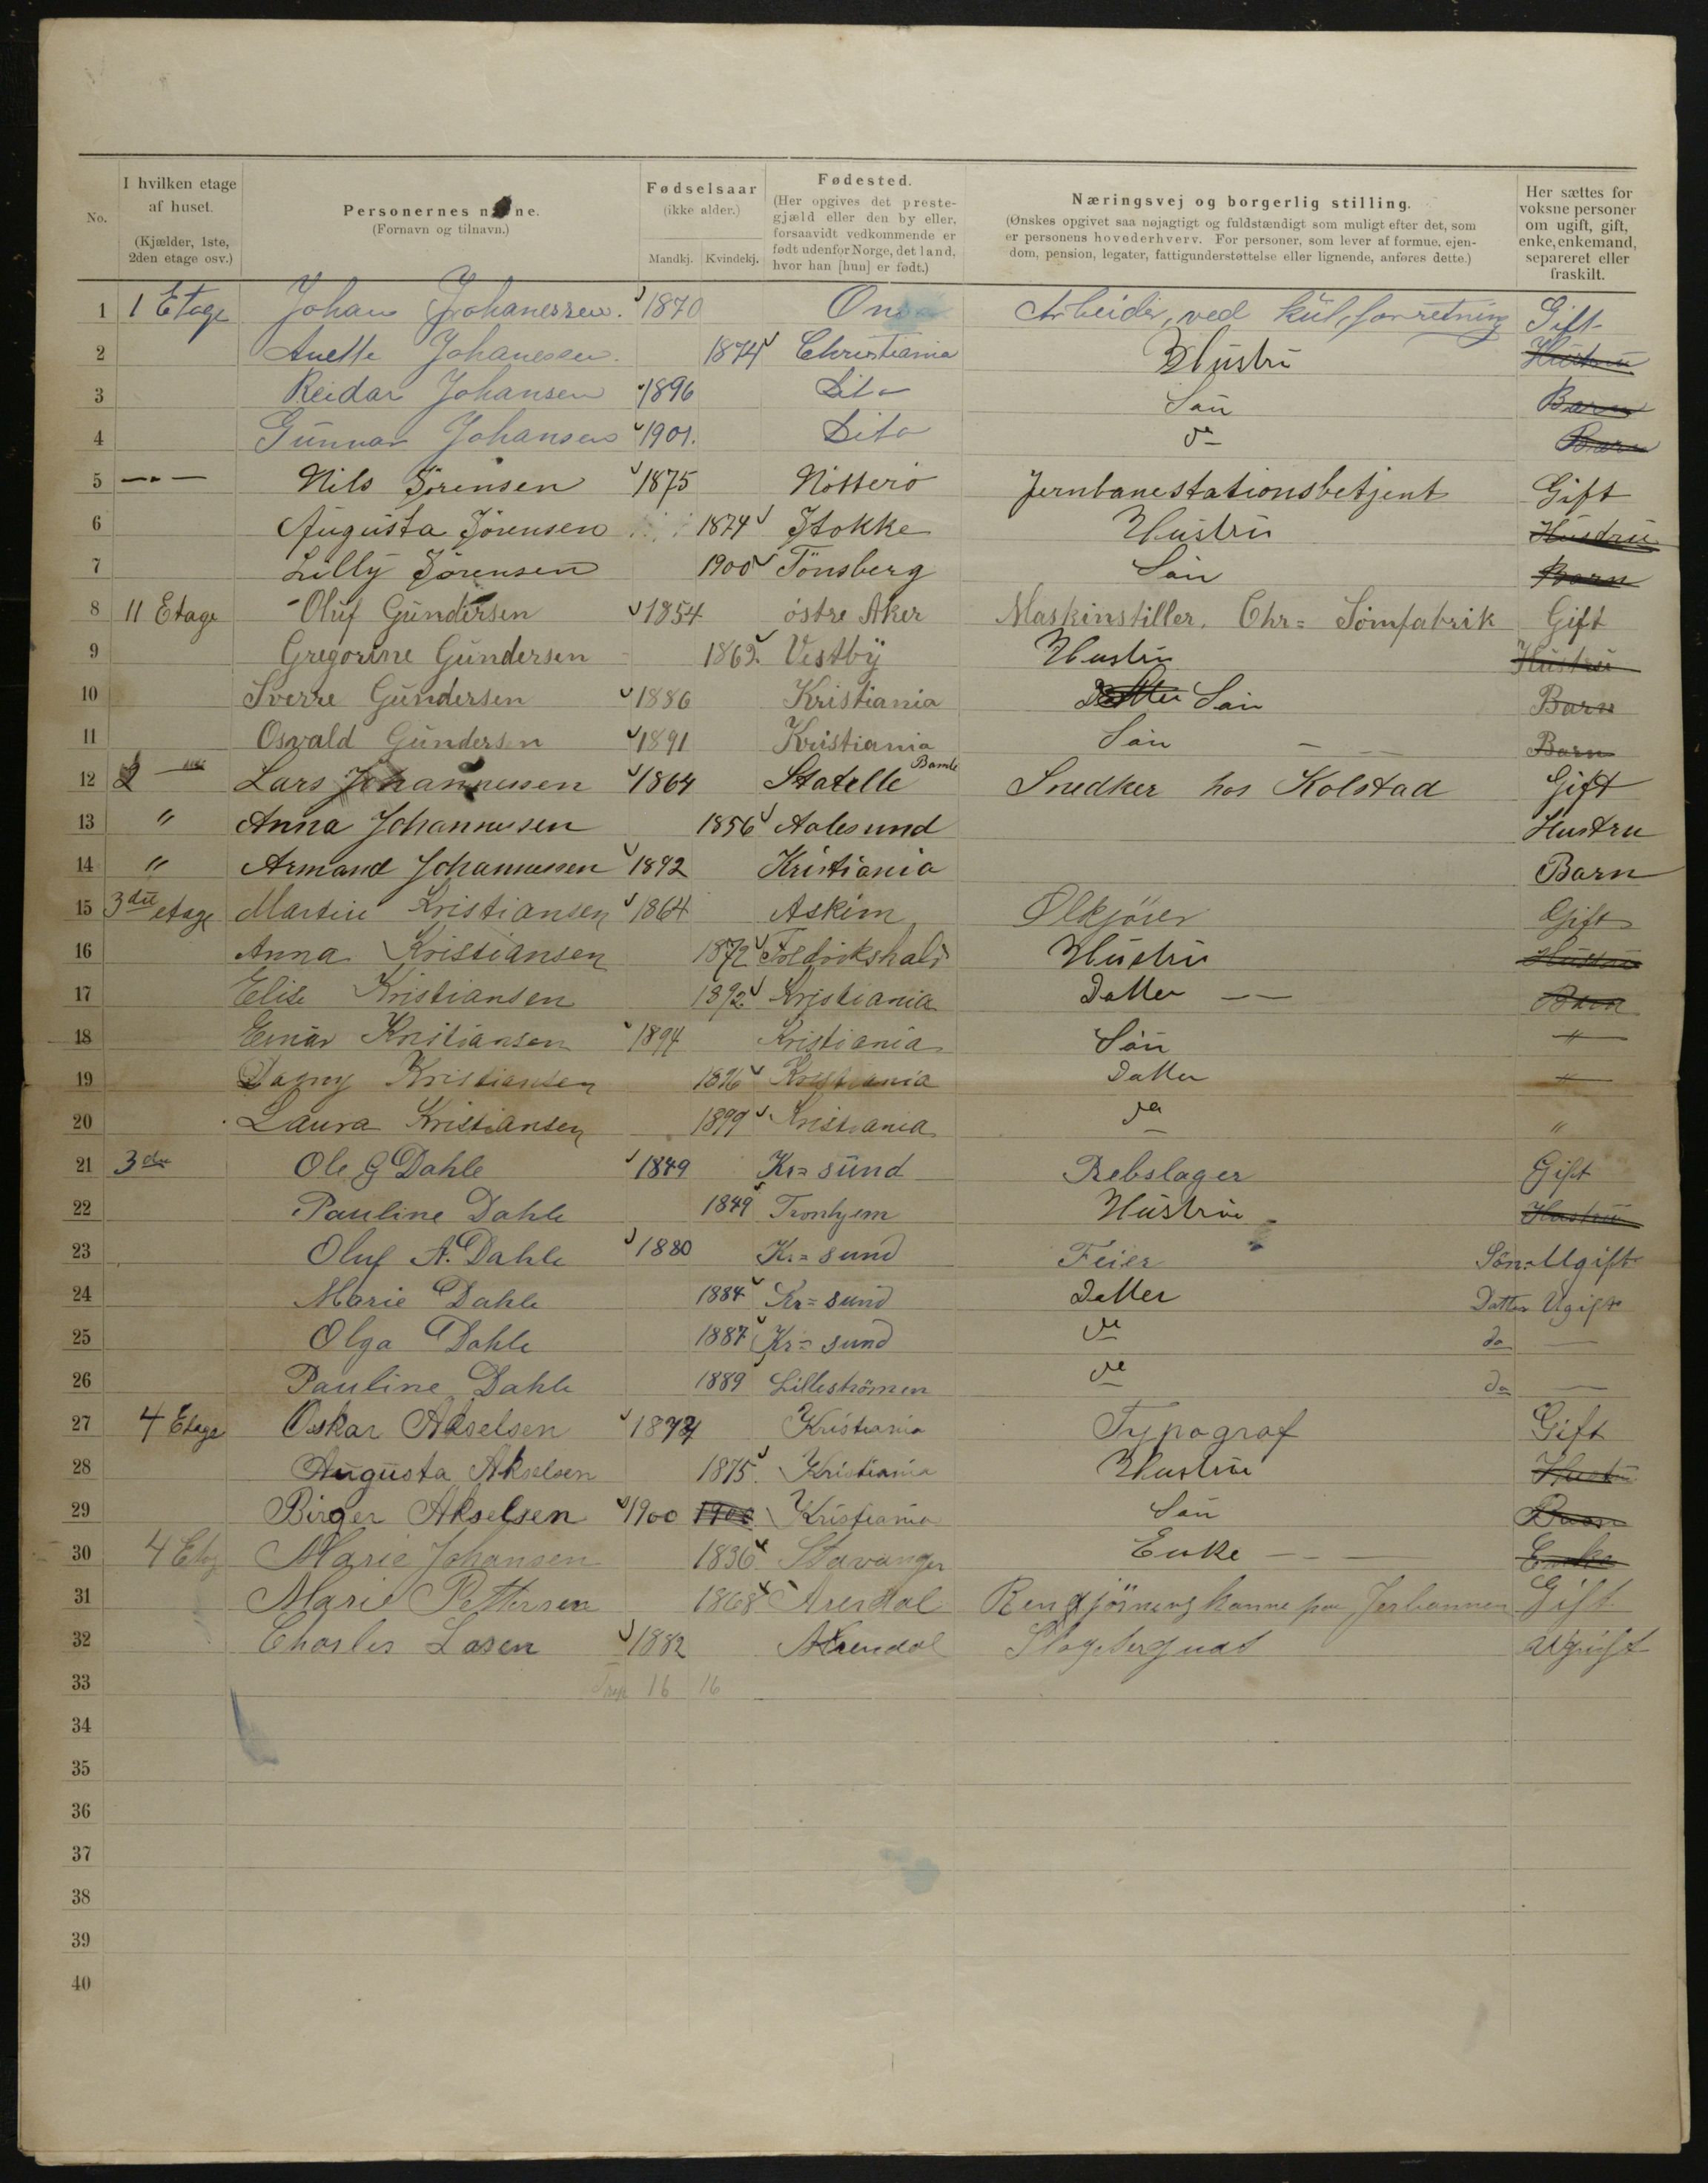 No.
I hvilken etage af huset. (Kjælder, 1ste, 2den etage osv.)
Personernes navne. (Fornavn og tilnavn.)
Fødselsaar (ikke alder.) Mandkj. Kvindekj.
Fødested. (Her opgives det prestegjæld eller den by eller, forsaavidt vedkommende er født udenfor Norge, det land, hvor han [hun] er født.)
Næringsvej og borgerlig stilling. (Ønskes opgivet saa nøjagtigt og fuldstændigt som muligt efter det, som er personens hovederhverv. For personer, som lever af formue, ejendom, pension, legater, fattigunderstøttelse eller lignende, anføres dette.)
Her sættes for voksne personer om ugift, gift, enke, enkemand, separeret eller fraskilt.
1 1 Etage Johan Johanessen. 1870 Arbeider, ved kulforretning Gift
2 Anette Johanesen. 1874 Christiania Hustru Hustru
3 Reidar Johansen 1896 Dito Søn Barn
4 Gunnar Johansen 1901. Dito do Barn
5 —„— Nils Sörensen 1875 Nötterö Jernbanestationsbetjent Gift
6 Augusta Sörensen 1874 Stokke Hustru Hustru
7 Lilly Sörensen 1900 Tönsberg Søn Barn
8 11 Etage Oluf Gundersen 1854 östre Aker Maskinstiller. Chr= Sömfabrik Gift
9 Gregorine Gundersen 1862. Vestby Hustru Hustru
10 Sverre Gundersen 1886 Kristiania Datter Søn Barn
11 Osvald Gundersen 1891 Kristiania Søn — — — Barn
12 2 — Lars Johannessen 1864 Statelle Bamle Snedker hos Kolstad Gift
13 " Anna Johannesen 1856 Aalesund Hustru
14 " Armand Johannessen 1892 Kristiania Barn
15 3die etage Martin Kristiansen 1864 Askim Ølkjörer Gift
16 Anna Kristiansen 1872 Fredrikshald Hustru Hustru
17 Elise Kristiansen 1892 Kristiania Datter — — Barn
18 Einar Kristiansen 1894 Kristiania Søn "
19 Dagny Kristiansen 1896 Kristiania Datter "
20 Laura Kristiansen 1899 Kristiania do "
21 3die Ole G Dahle 1849 Kr=sund Rebslager Gift
22 Pauline Dahle 1849 Tronhjem Hustru Hustru
23 Oluf A. Dahle 1880 Kr=sund Feier Sön=Ugift
24 Marie Dahle 1884 Kr=sund Datter Datter Ugift
25 Olga Dahle 1887 Kr=sund do do —
26 Pauline Dahle 1889 Lilleströmen do do —
27 4 Etage Oskar Akselsen Kristiania Typograf Gift
28 Augusta Akselsen 1875. Kristiania Hustru Hustru
29 Birger Akselsen 1900 1900 Kristiania Søn Barn
30 4 Etg Marie Johansen 1836 Stavanger Enke — — — Enke
31 Marie Pettersen 1868 Arendal Rengjöringskonne paa Jerbannen Gift
32 Charles Lasen 1882 Arendal Ugift
33 16 16
34
35
36
37
38
39
40